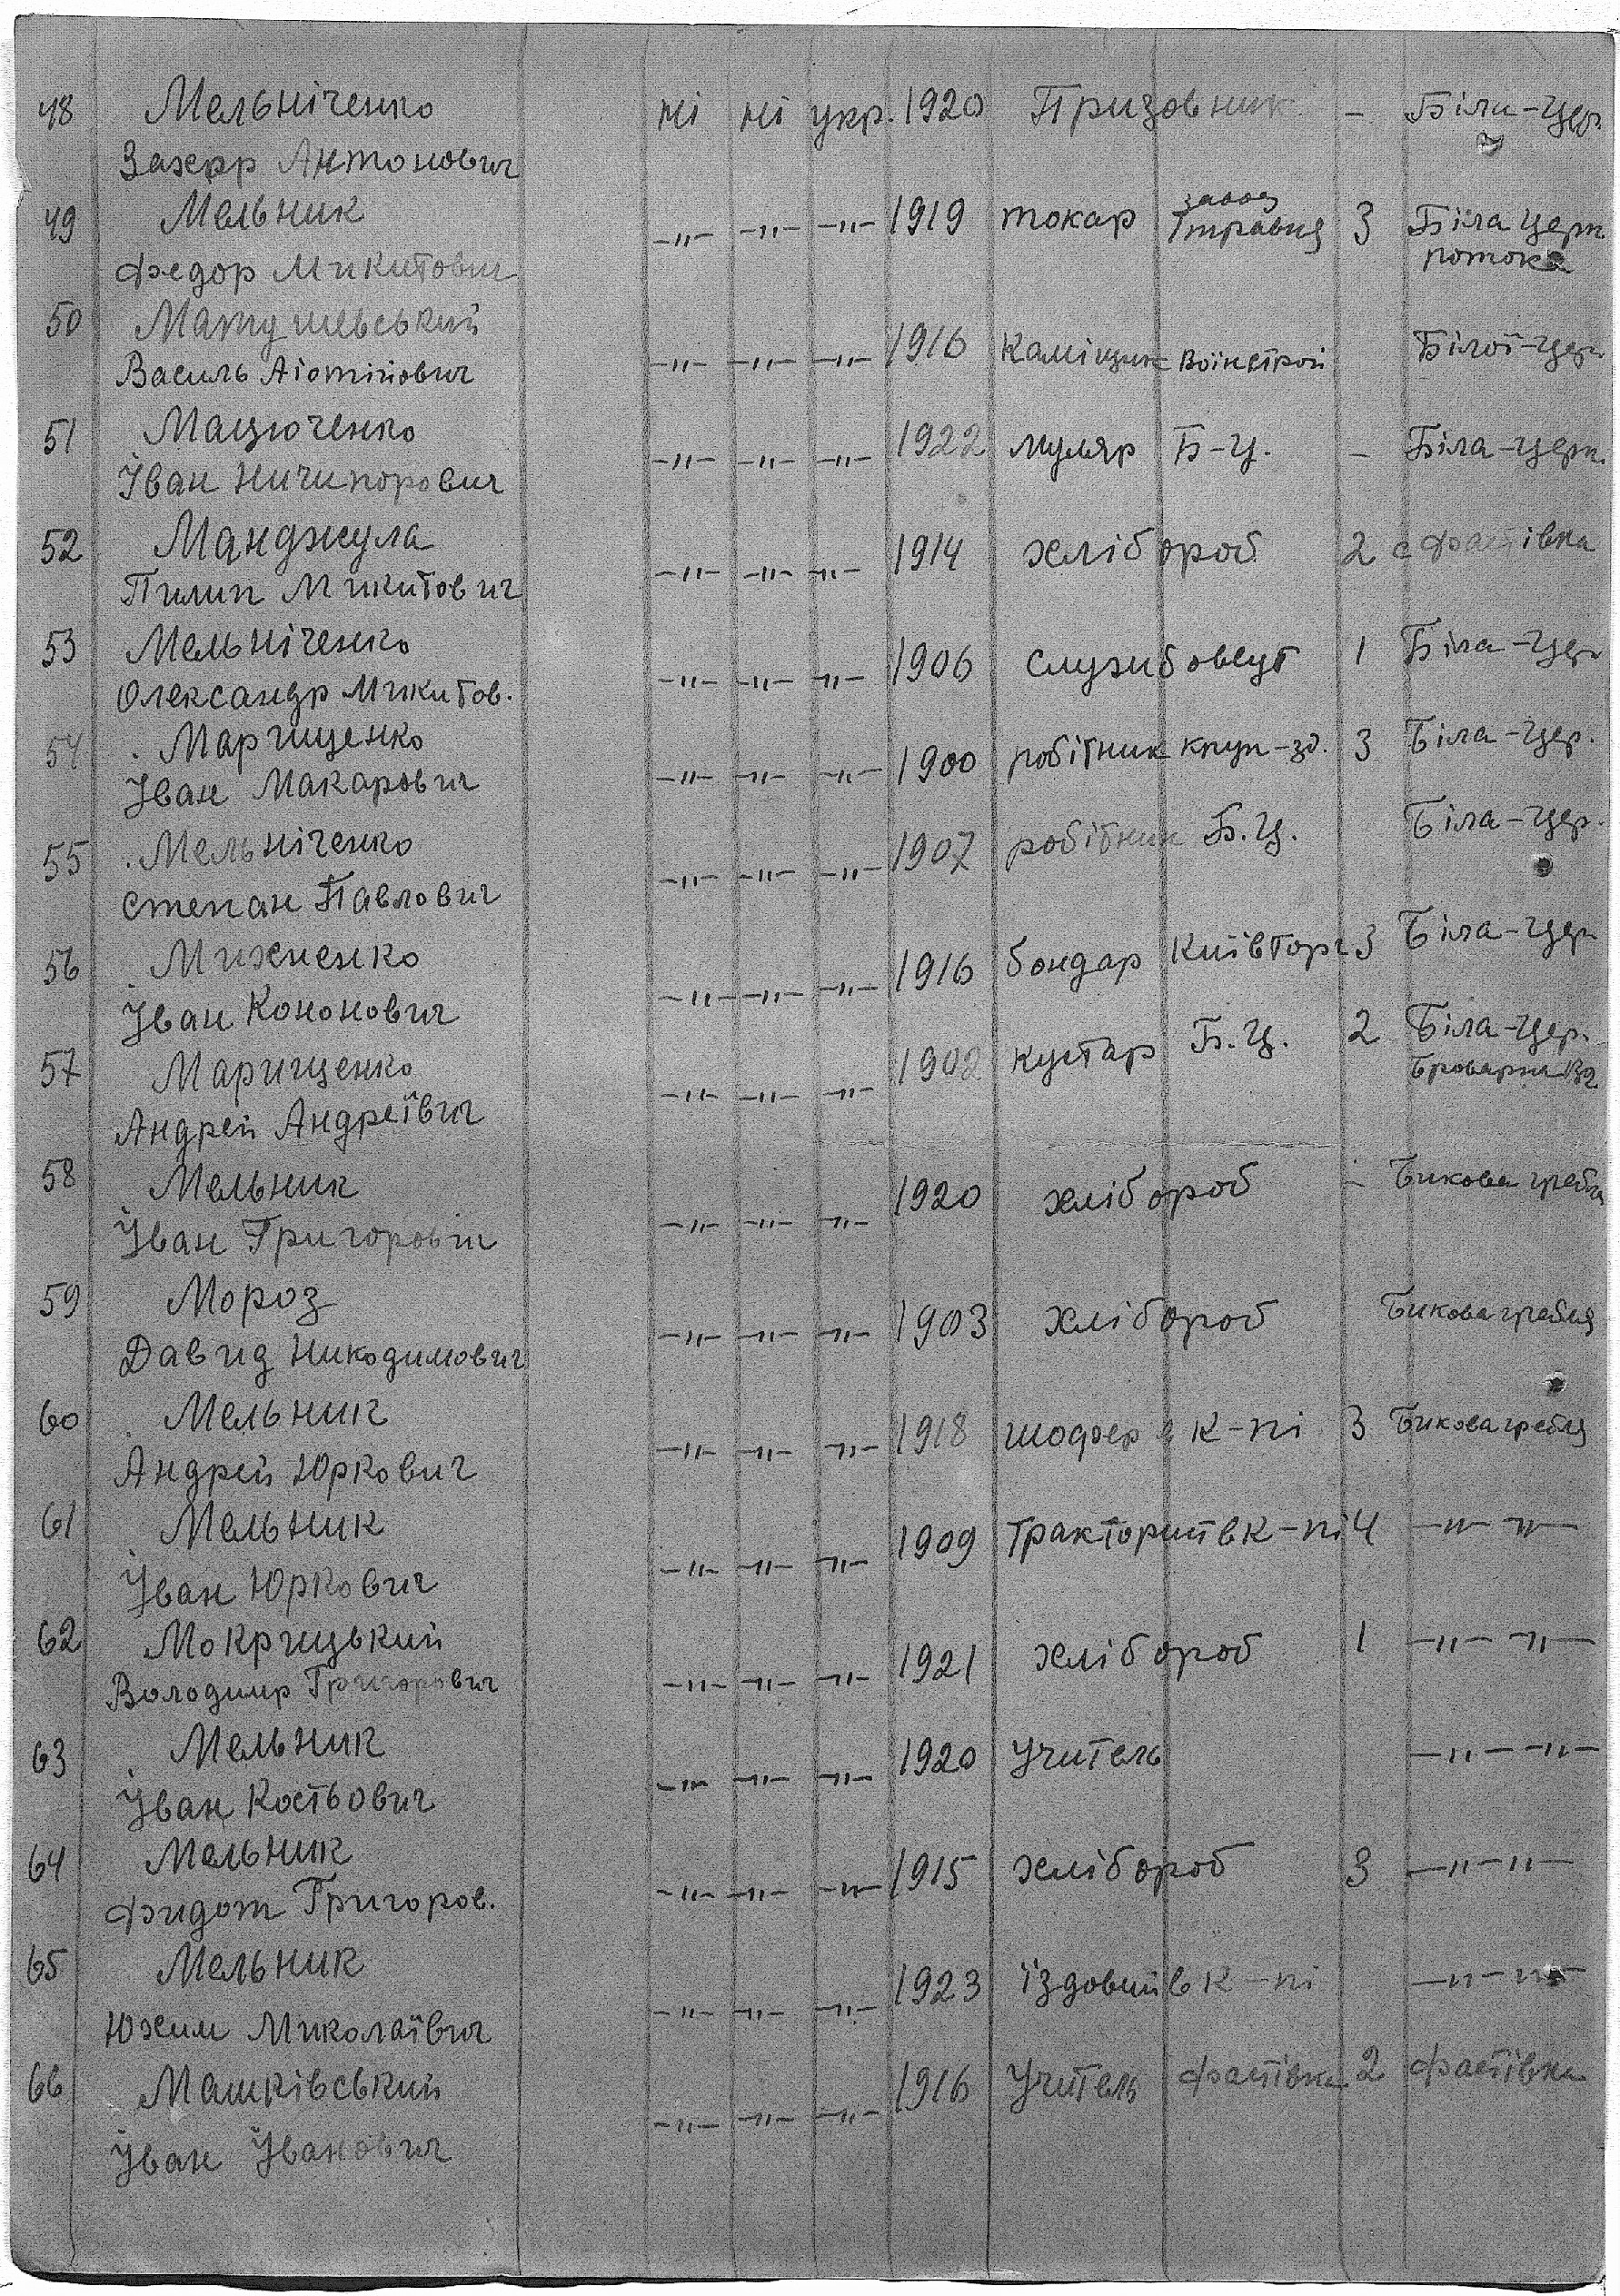 48 Мельніченко ні ні укр. 1920 Призовник – Біла-Цер.
Захарр Антонович
49 Мельник –"– –"– –"– 1919 токар завод 1 травня 3 Біла Церк.
Федор Микитович потока
50 Матушевський –"– –"– –"– 1916 Каміщик Воінстрой Білої-Цер.
Василь
51 Мацюченко –"– –"– –"– 1922 муляр Б-Ц. – Біла-Церк.
Іван Ничипорович
52 Манджула –"– –"– –"– 1914 хлібороб 2 с Фастівка
Пилип Микитович
53 Мельніченко –"– –"– –"– 1906 службовець 1 Біла-Цер
Олександр Микитов.
54 Марищенко –"– –"– –"– 1900 робітник круп-зд. 3 Біла-Цер.
Іван Макарович
55 Мельніченко –"– –"– –"– 1907 робітник Б.Ц. Біла-Цер.
Степан Павлович
56 Михненко –"– –"– –"– 1916 бондар Київторг 3 Біла-Цер
Іван Кононович
57 Марищенко –"– –"– –"– 1902 кустар Б.Ц. 2 Біла-Цер.
Андрей Андреївич Броварна
58 Мельник –"– –"– –"– 1920 хлібороб – Бикова гребля
Іван Григорович
59 Мороз –"– –"– –"– 1903 хлібороб Бикова гребля
Давид Никодимович
60 Мельник –"– –"– –"– 1918 шофер в К-пі 3 Бикова гребля
Андрей Юркович
61 Мельник –"– –"– –"– 1909 Тракторист в К-пі 4 –"– –"–
Іван Юркович
62 Мокрицький –"– –"– –"– 1921 хлібороб 1 –"– –"–
Володимр Григорович
63 Мельник –"– –"– –"– 1920 Учитель –"– –"–
Іван Костьович
64 Мельник –"– –"– –"– 1915 хлібороб 3 –"– –"–
Фидот Григоров.
65 Мельник –"– –"– –"– 1923 їздовий в К-пі –"– –"–
Юхим Миколаївич
66 Машківський –"– –"– –"– 1916 Учитель Фастівка 2 Фастівка
Іван Іванович